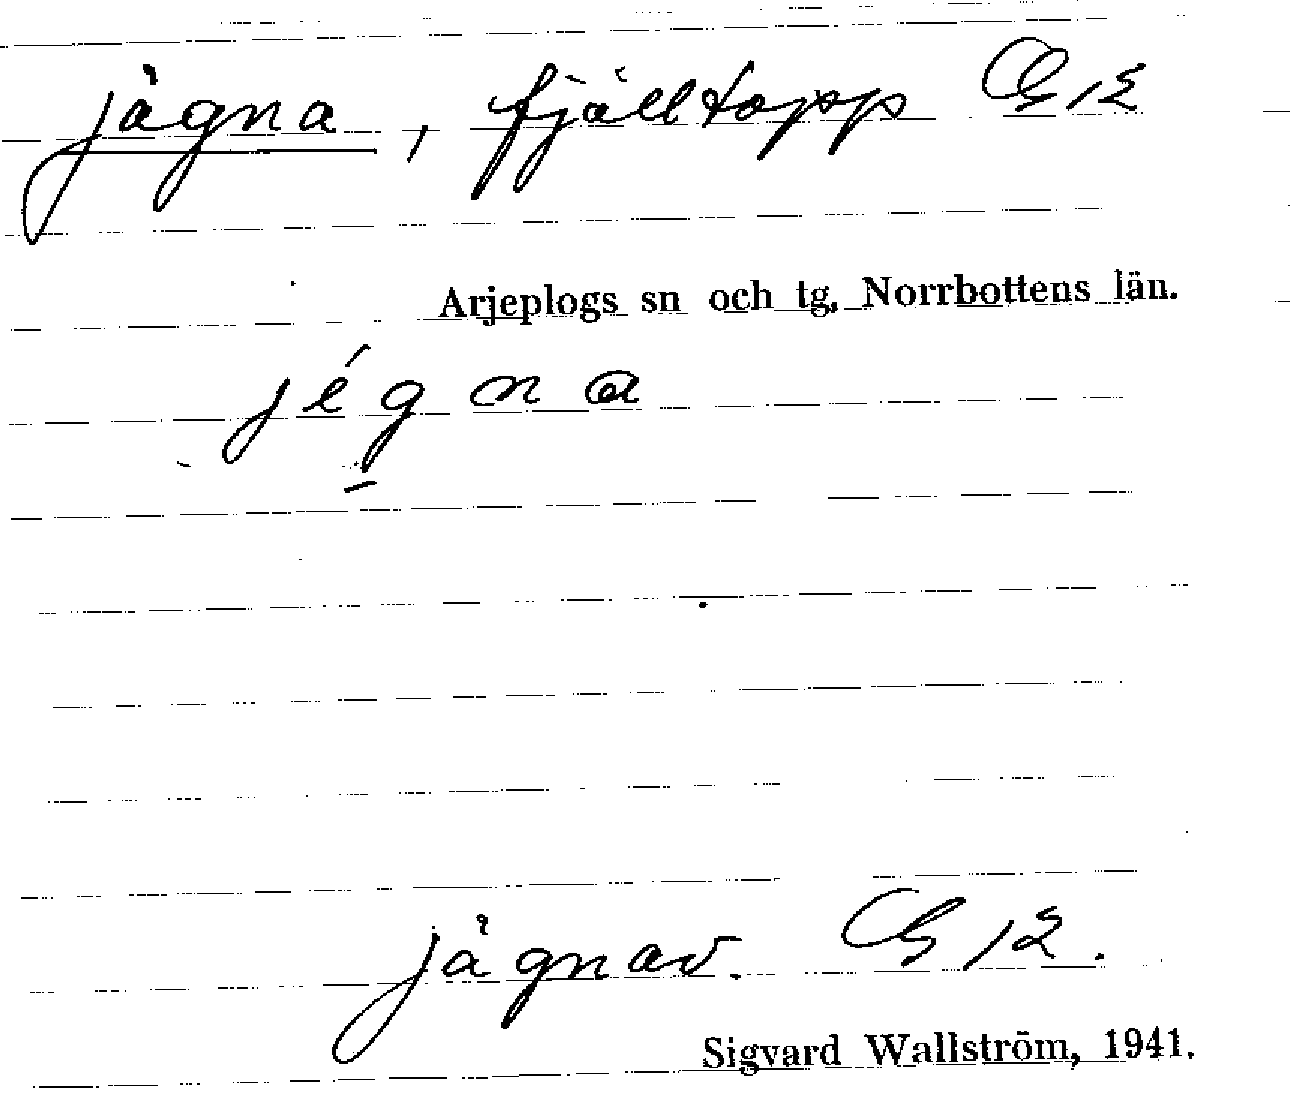 jågna, fjälltopp G12
Arjeplogs sn och tg, Norrbottens län.
jégna
jågnav. G12.
Sigvard Wallström, 1941.